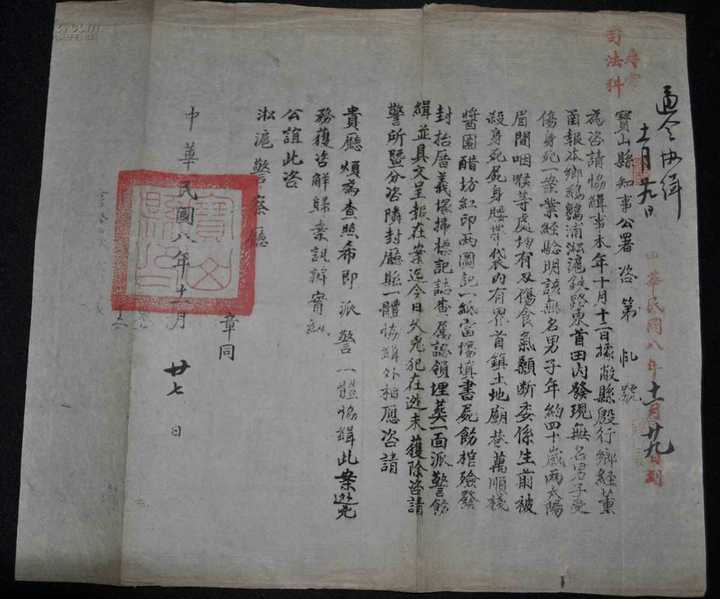 司法科
通令協緝
十一月廿九日
中華民國八年十一月廿九日到
寶山縣知事公署咨第 號
為咨請協緝事本年十月十二日據敝縣殷行鄉經董
函報本鄉鴻鶴浦淞滬鐵路東首田內發現無名男子受
傷身死一案業經驗明該無名男子年約四十歲兩太陽
眉間咽喉等處均有刃傷食氣顙斷委係生前被
殺身死屍身腰帶袋內有界首鎮土地廟巷萬順棧
醬園醋坊紅印兩圖記一紙當場填書屍飭棺殮發
封抬厝義塚掃標記誌查屬認領埋葬一面派警飭
緝並具文呈報在案迄今日久兇犯在逃未獲除咨請
警所暨分咨隣封廳縣一體協緝外相應咨請
貴廳煩為查照希即派警一體協緝此案逃兇
務獲咨解歸案訊辦實紉
公誼此咨
淞滬警察廳
章同
中華民國八年十一月廿七日